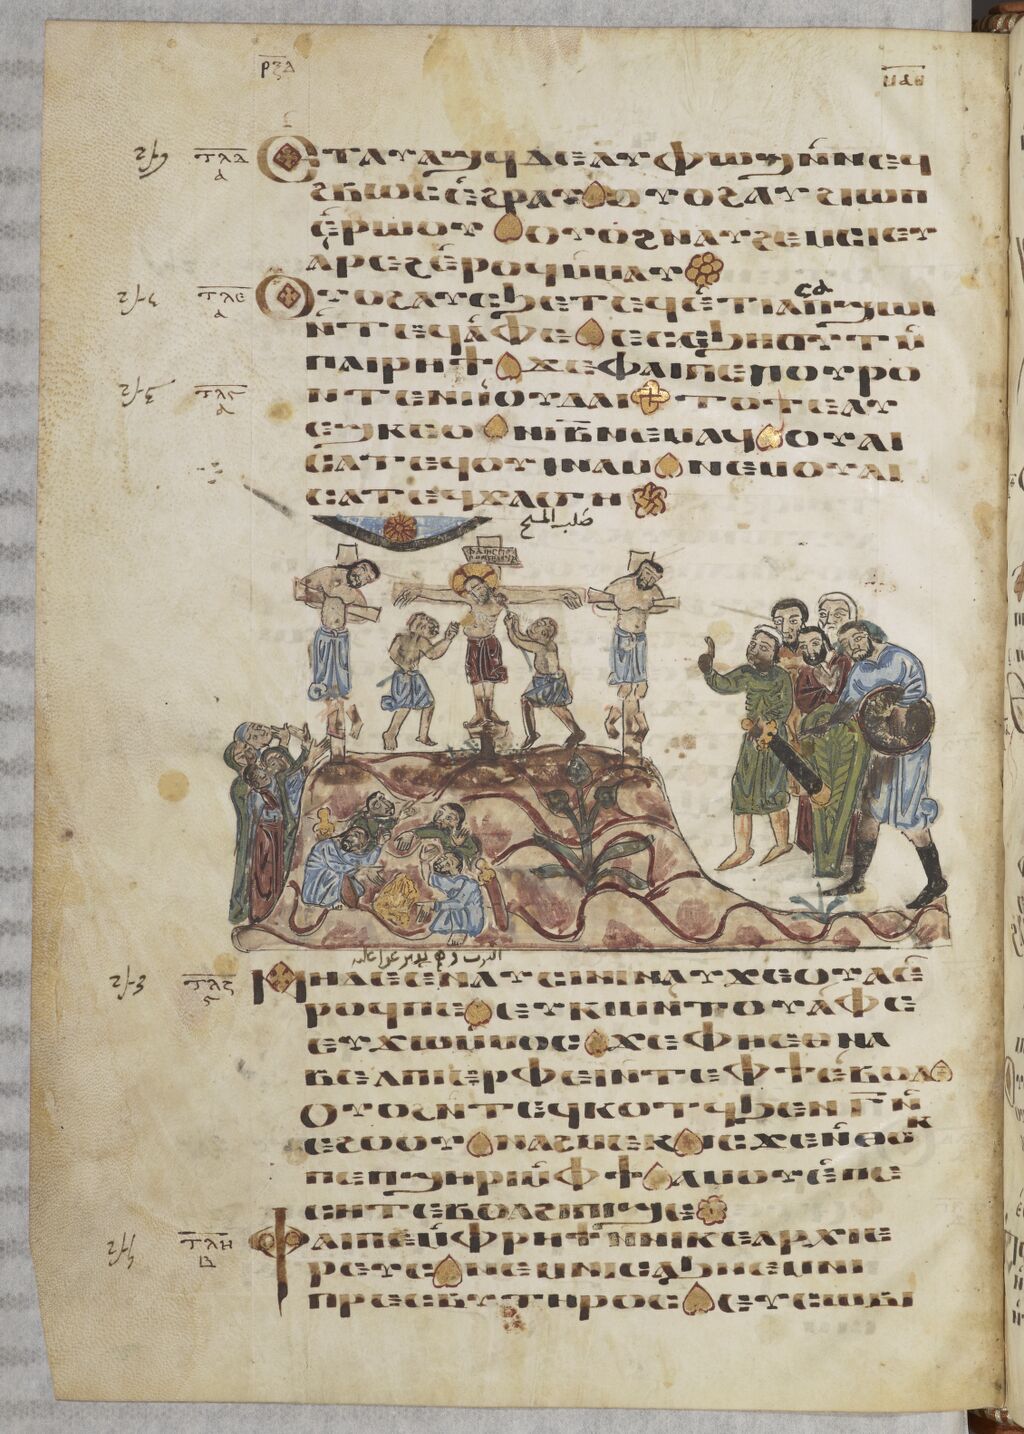 ⲧⲗⲇ ⲁ ⲉⲧⲁⲩⲁϣϥ ⲇⲉ ⲁⲩⲫⲱϣ ⲛ̀ⲛⲉϥ
ϩⲃⲱⲥ ⲉ̀ϩⲣⲁⲩ ⲟⲩⲟϩ ⲁⲩϩⲓⲱⲡ
ⲉ̀ⲣⲱⲟⲩ ⲟⲩⲟϩ ⲛⲁⲩϩⲉⲙⲥⲓ ⲉⲩ
ⲁ̀ⲣⲉϩ ⲉ̀ⲣⲟϥ ⲙ̀ⲙⲁⲩ
ⲧⲗⲉ ⲁ ⲟⲩⲟϩ ⲁⲩⲥϧⲉ ⲧⲉϥⲉ̀ⲧⲓⲁ ⲥⲁⲡϣⲱⲓ
ⲛ̀ⲧⲉϥⲁ̀ⲫⲉ ⲉⲥⲥϧⲏⲟⲩⲧ ⲙ̀
ⲡⲁⲓⲣⲏϯ ϫⲉ ⲫⲁⲓ ⲡⲉ ⲡⲟⲩⲣⲟ
ⲧⲗⲋ ⲁ ⲛⲧⲉ ⲛⲓⲓⲟⲩⲇⲁⲓ ⲧⲟⲧⲉ ⲁⲩ
ⲉϣ ⲕⲉⲥⲟⲛⲓ ⲃ̄ ⲛⲉⲙⲁϥ ⲟⲩⲁⲓ
ⲥⲁⲧⲉϥⲟⲩⲓⲛⲁⲙ ⲛⲉⲙ ⲟⲩⲁⲓ
ⲥⲁⲧⲉϥϫⲁϭⲏ
صلب المسيح
ⲧⲗⲍ ⲋ ⲛⲏ ⲇⲉ ⲉⲛⲁⲩⲥⲓⲛⲓ ⲛⲁⲩϫⲉⲟⲩⲁ ⲉ̀
ⲣⲟϥ ⲡⲉ ⲉⲩⲕⲓⲙ ⲛ̀ⲧⲟⲩⲁ̀ⲫⲉ
ⲉⲩϫⲱ ⲙ̀ⲙⲟⲥ ϫⲉ ⲫⲏ ⲉⲑⲛⲁ
ⲃⲉⲗ ⲡⲓⲉⲣⲫⲉⲓ ⲛⲧⲉ ⲫϯ ⲉ̀ⲃⲟⲗ
ⲟⲩⲟϩ ⲛ̀ⲧⲉϥⲕⲟⲧϥ ϧⲉⲛ ⲅ̄ ⲛ̀
ⲉϩⲟⲟⲩ ⲛⲁϩⲙⲉⲕ ⲓⲥϫⲉ ⲛ̀ⲑⲟⲕ
ⲡⲉ ⲡϣⲏⲣⲓ ⲙ̀ⲫϯ ⲁⲙⲟⲩ ⲉ̀ⲡⲉ
ⲥⲏⲧ ⲉⲃⲟⲗ ϩⲓ ⲡⲓϣⲉ
ⲧⲗⲏ ⲫⲁⲓ ⲡⲉ ⲙ̀ⲫⲣⲏϯ ⲛⲛⲓⲕⲉⲁⲣⲭⲓⲉ
ⲣⲉⲩⲥ ⲛⲉⲙ ⲛⲓⲥⲁϧ ⲛⲉⲙ ⲛⲓ
ⲡⲣⲉⲥⲃⲩⲧⲏⲣⲟⲥ ⲉⲩⲥⲱⲃⲓ